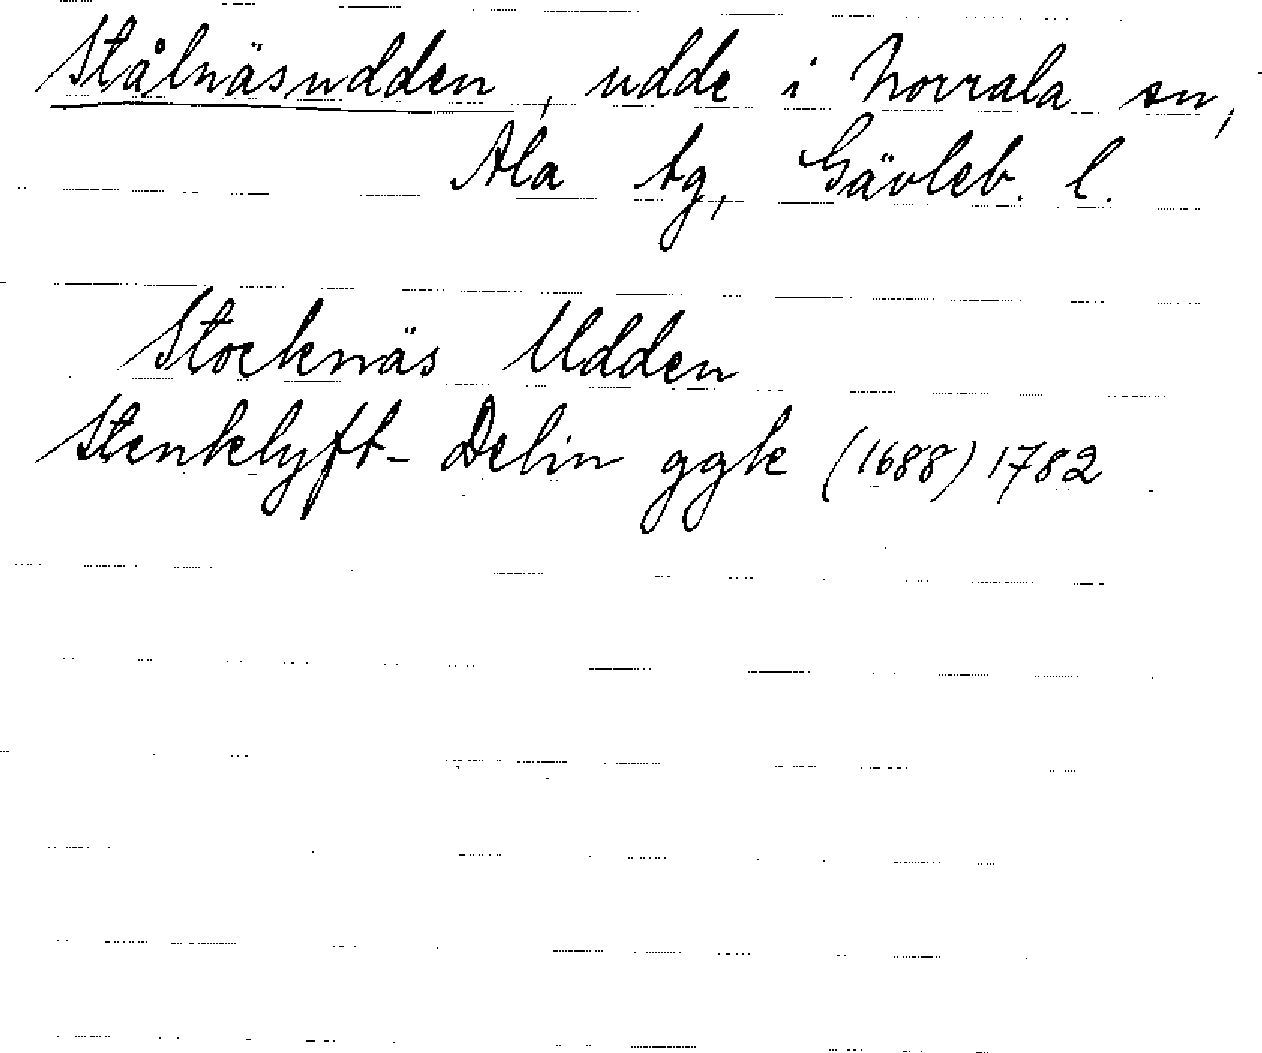 Stålnäsudden, udde i Norrala sn,
Ala tg, Gävleb. l.
Stocknäs Udden
Stenklyft- Delin ggk (1688) 1782